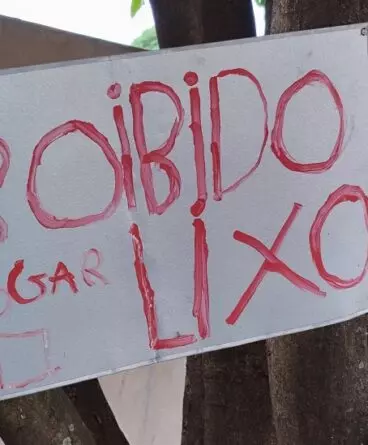 ROIBIDO
OGAR LIXO